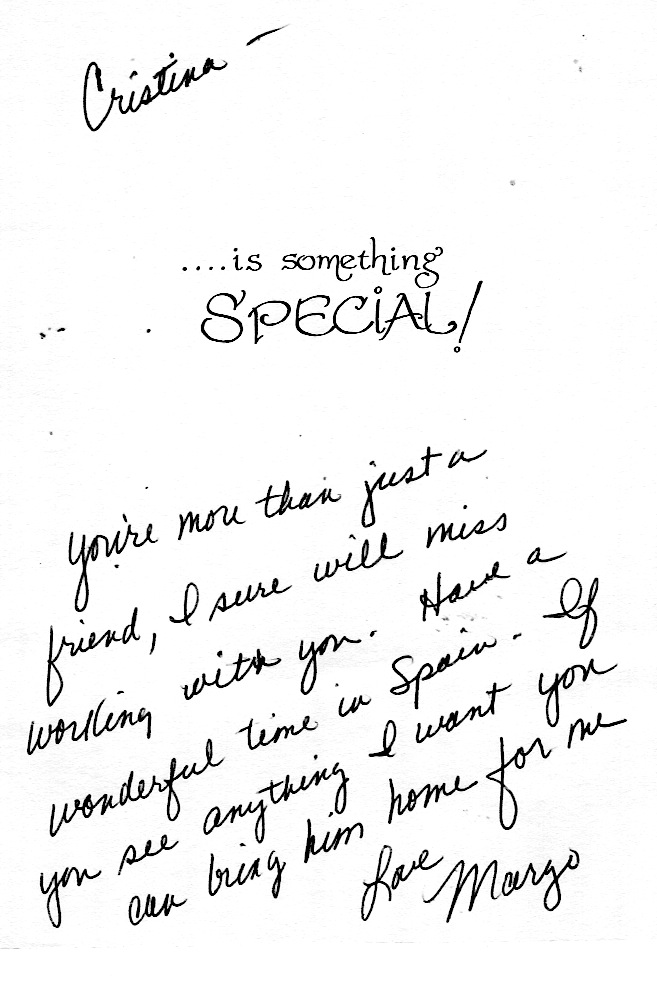 Cristina —
....is something
SPECIAL!
You're more than just a
friend, I sure will miss
working with you. Have a
wonderful time in Spain. If
you see anything I want you
can bring him home for me
Love Margo